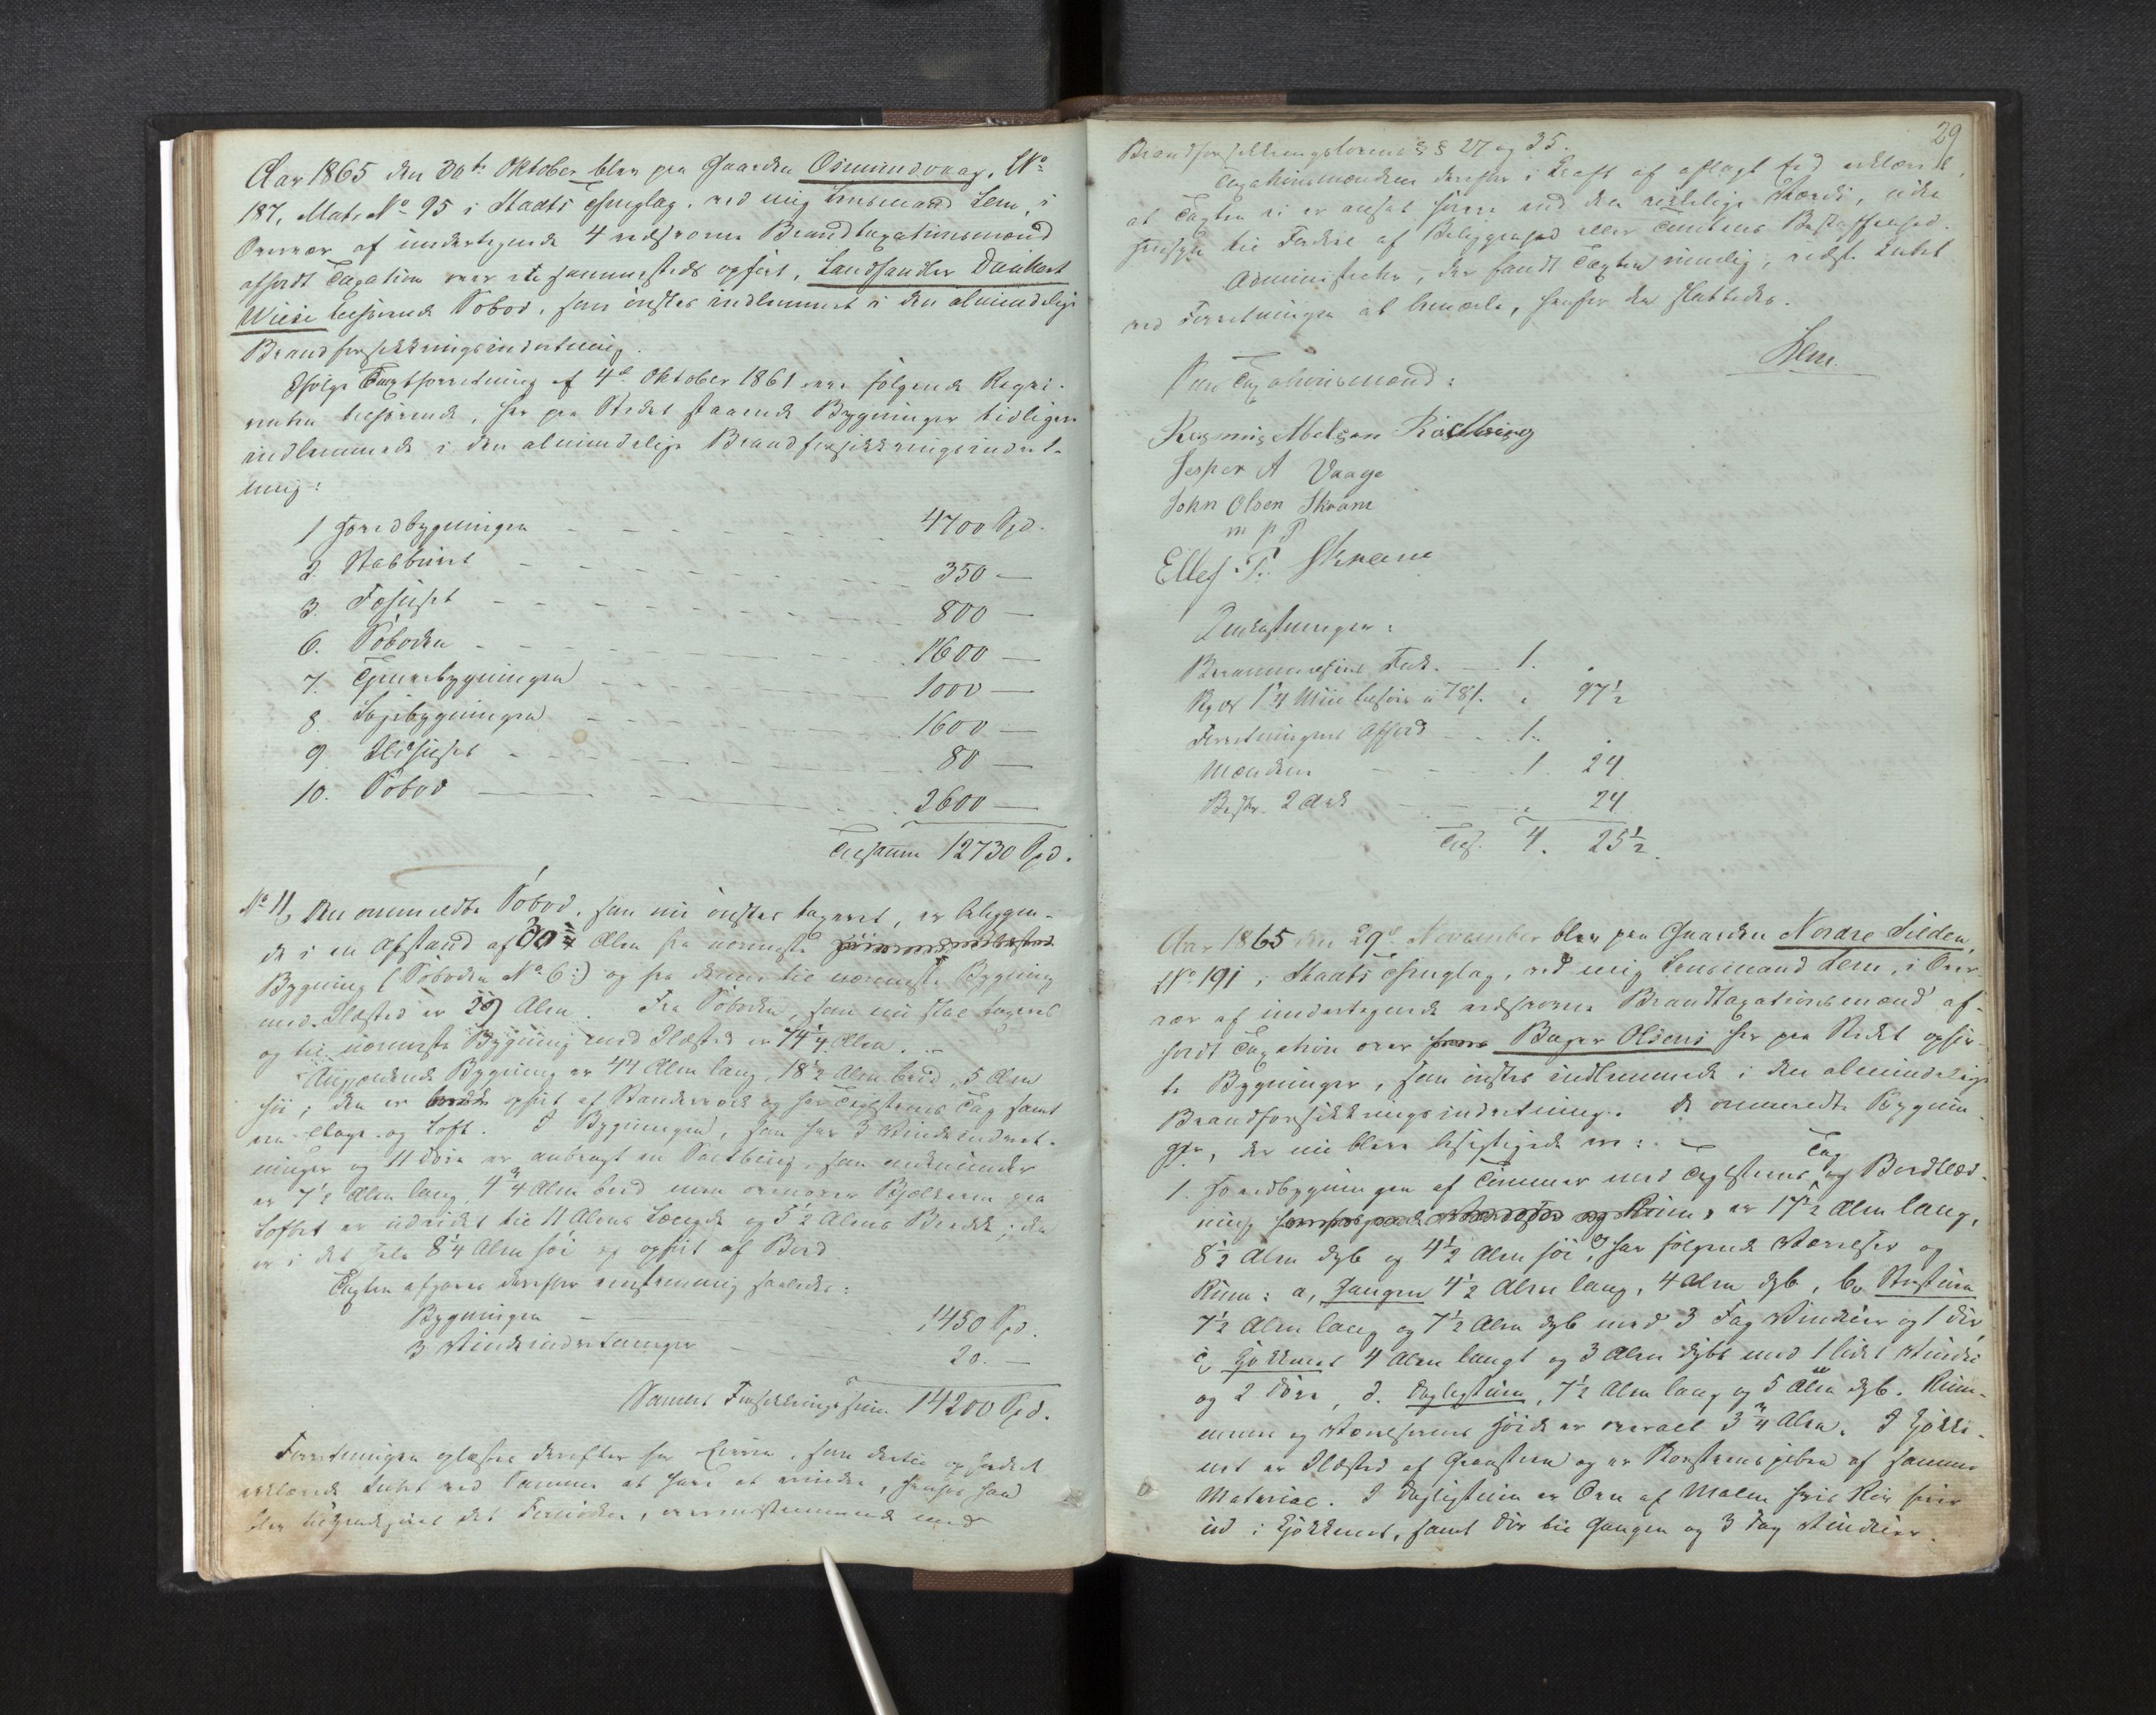 Aar 1865 den 30te Oktober blev paa Gaarden Osmundvaag, LNo
187, Mat. No 95 i Stadts Thinglag, ved mig Lensmand Lem, i
Overvær af undertegnede 4 edsvorne Brandtaxationsmænd
afholdt Taxation over et sammesteds opført, Landhandler Dankert
Wiese tilhørende Søbod, som ønskes indlemmet i den almindelige
Brandforsikkringsindretning.
Ifølge Taxtforretning af 4de Oktober 1861 ere følgende Reqvi-
renten tilhørende, her paa Stedet staaende Bygninger tidligere
indlemmede i den almindelige Brandforsikkringsindret-
ning:
1 Hovedbygningen 4700 Spd.
2. Stabburet 350 —
3. Fæhuset 800 —
6. Søboden 1600 —
7. Tjenerbygningen 1000 —
8. Løjebygningen 1600 —
9. Ildhuset 80 —
10. Søbod 2600 —
Tilsamm 12730 Spd.
No 11, Den ommeldte Søbod, som nu ønskes taxeret, er beliggen-
de i en Afstand af 30 Alen fra nærmeste
Bygning (Søboden No 6:) og fra denne til nærmeste Bygning
med Ildsted er 59 Alen. Fra Søboden, som nu skal taxeres
og til nærmeste Bygning med Ildsted er 74 1/4 Alen.
Angjældende Bygning er 44 Alen lang, 18 1/2 Alen bred, 5 Alen
høi; den er opført af Standerværk og har Teglsteens Tag samt
en Etage og Loft. I Bygningen, som har 3 Vindeindret-
ninger og 11 Døre er anbragt en Saltbing, som nedenunder
er 7 1/2 Alen lang, 4 3/4 Alen bred men ovenover Bjelkerne paa
Loftet er udvidet til 11 Alens Længde og 5 1/2 Alens Bredde; den
er i det Hele 8 1/4 Alen høi og opført af Bord
Taxten afgaves derefter eenstemmig saaledes:
Bygningen 1450 Spd.
3 Vindeindretninger 20. —
Samlet Forsikkringssum 14200 Spd.
Forretningen oplæstes derefter for Eieren, som dertil
erklærede Intet ved Samme at have at erindre, hvorhos han
blev tilkjendegivet det Fornødne, overensstemmende med
29
Brandforsikkringslovens §§ 27 og 35.
Taxationsmændene derefter i Kraft af aflagt Eed erklærede,
at Taxten ei er ansat høiere end den virkelige Værdi, uden
Hensyn til Fordele af Beliggenhed eller Tomtens Beskaffenhed.
Administrator, der fandt Taxten rimelig, vidste Intet
ved Forretningen at bemærke, hvorfor den sluttedes.
Lem.
Som Taxationsmænd:
Rasmus Abelsen
Jesper A Vaage
John Olsen Skram
m p P
Ellef T. Skram
Omkostninger:
1. .
Reise 1 1/4 Miil à 78 s. " 97 1/2
Forretningens Afhold 1. .
Mændene 1. 24
Beskr. 2 Ark " 24
Tils. 4. 25 1/2.
Aar 1865 den 29de November blev paa Gaarden Nordre Silden,
LNo 191, Stadts Thinglag, ved mig Lensmand Lem, i Over-
vær af undertegnede edsvorne Brandtaxationsmænd af-
holdt Taxation over Bager Olsens her paa Stedet opfør-
te Bygninger, som ønskes indlemmede i den almindelige
Brandforsikkringsindretning. De ommeldte Bygnin-
ger, der nu bleve besigtigede ere:
1. Hovedbygningen af Tømmer med Teglsteens Tag og Bordklæd-
ning er 17 1/2 Alen lang,
8 1/2 Alen dyb og 4 1/2 Alen høi, og har følgende Værelser og
Rum: a, Gangen 4 1/2 Alen lang, 4 Alen dyb, b, Storstuen
7 1/2 Alen lang og 7 1/2 Alen dyb med 3 Fag Vinduer og 1 Dør,
c, Kjøkkenet 4 Alen langt og 3 Alen dybt med 1 lidet Vindue
og 2 Døre, d. Dagligstuen, 7 1/2 Alen lang og 5 Alen dyb. Rum-
menes og Værelsernes Høide er overalt 3 3/4 Alen. I Kjøkke-
net er Ildsted af Graasteen og er Skorsteenspiben af samme
Materiale. I Dagligstuen er Ovn af Malm hvis Rør fører
ud i Kjøkkenet, samt Dør til Gangen og 3 Fag Vinduer.